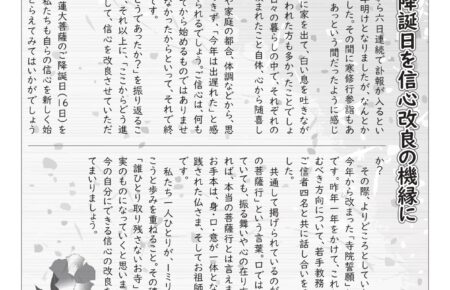 降誕日を信心改良の機縁に
ら六日連続で訃報が入るとい
年明けとなりましたが、なんとか
した。その間に寒修行参詣もあ
あっという間だったように感じ
に家を出て、白い息を吐きなが
われた方も多かったことでしょ
日々の暮らしの中で、それぞれの
まれたこと自体、心から随喜し
や家庭の都合、体調などから、思
きず、「今年は出遅れた」と感
られるでしょう。ご信心は、何も
てから始めるものではありませ
なかったからといって、それで終
どうであったか?」を振り返るこ
それ以上に、「ここからどう進
て、信心を改良させていただ
蓮大菩薩のご降誕日(16日)を
私たちも自らの信心を新しく始
とらえてみてはいかがでしょう
か?
その際、よりどころとしてい
今年から改まった「寺院誓願」
です。昨年一年をかけて、これ
むべき方向について、若手教務
ご信者四名と共に話し合いを
した。
共通して掲げられているのが
の菩薩行」という言葉。口では
ていても、振る舞いや心の在り
れば、本当の菩薩行とは言えま
お手本は、身・口・意が一体とな
践された仏さま、そしてお祖師
私たち一人ひとりが、一ミリ
こうと歩みを重ねること。その
「誰ひとり取り残さないお寺」
実のものになっていくと思いま
今の自分にできる信心の改良を
てまいりましょう。